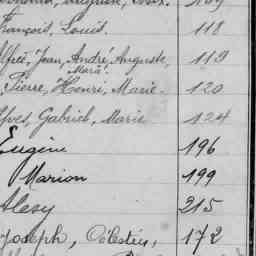 François, Louis. 118
Alfred, Jean, André, Auguste, 119
Marie.
Pierre, Henri, Marie. 120
Yves, Gabriel, Marie 124
Eugène 196
Marion 199
Alexy 215
Joseph, Célestin, 172